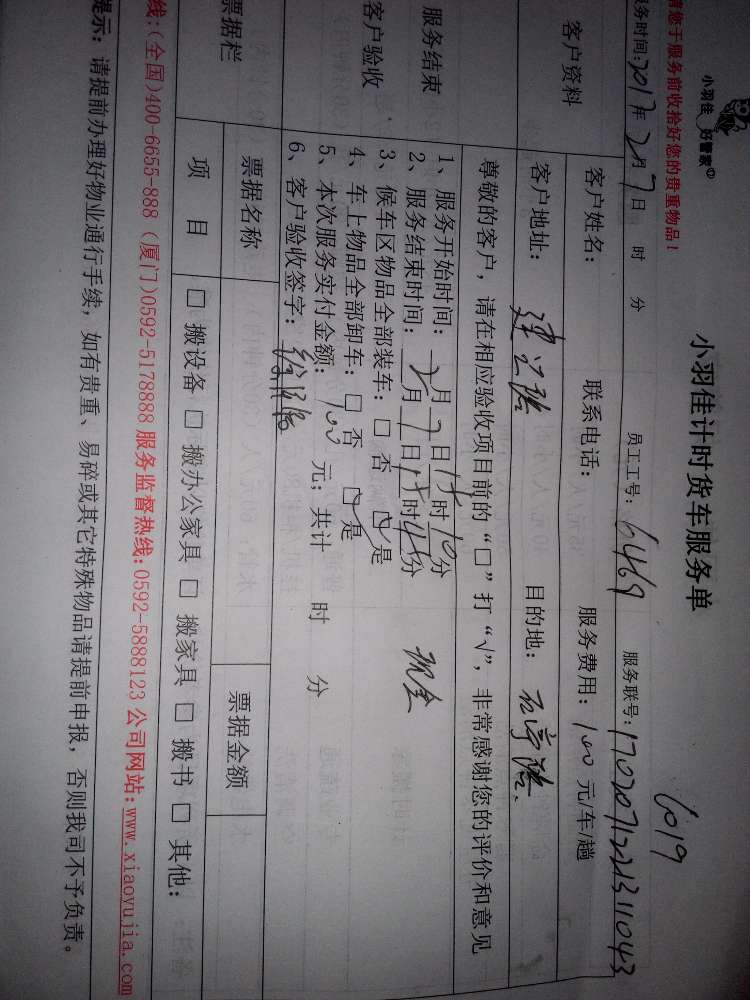 小羽佳 好管家
请您于服务前收拾好您的贵重物品！
小羽佳计时货车服务单
6019
服务时间：2017年2月7日 时 分 员工工号：6469 服务联号：170207122213111043
客户资料
客户姓名： 联系电话： 服务费用：100元/车/趟
客户地址： 目的地：
尊敬的客户，请在相应验收项目前的“□”打“√”，非常感谢您的评价和意见
服务结束
客户验收
1、服务开始时间：2月7日15时10分
2、服务结束时间：2月7日15时45分
3、候车区物品全部装车：□ 否 □是
4、车上物品全部卸车：□ 否 □是
5、本次服务实付金额：100元；共计 时 分
6、客户验收签字：
现金
票据栏
票据名称 票据金额
项 目 □ 搬设备 □ 搬办公家具 □ 搬家具 □ 搬书 □ 其他：
线：(全国)400-6655-888（厦门)0592-5178888 服务监督热线：0592-5888123 公司网站：www.xiaoyujia.com
提示：请提前办理好物业通行手续，如有贵重、易碎或其它特殊物品请提前申报，否则我司不予负责。